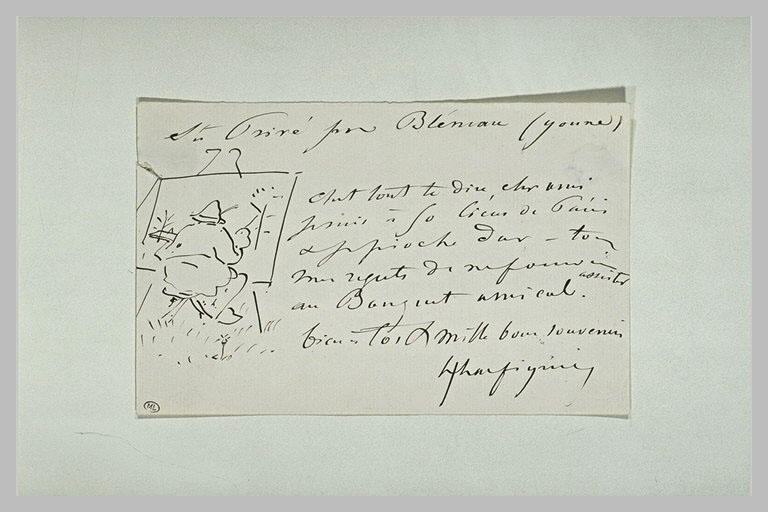 St Privé par Bléneau (yonne)
73
c'est tout te dire cher ami
à 50 lieues de Paris
d'ar - tous
mes regrets de ne pouvoir assister
au Banquet amical.
bien à toi & mille bons souvenirs
Harpignies
ML